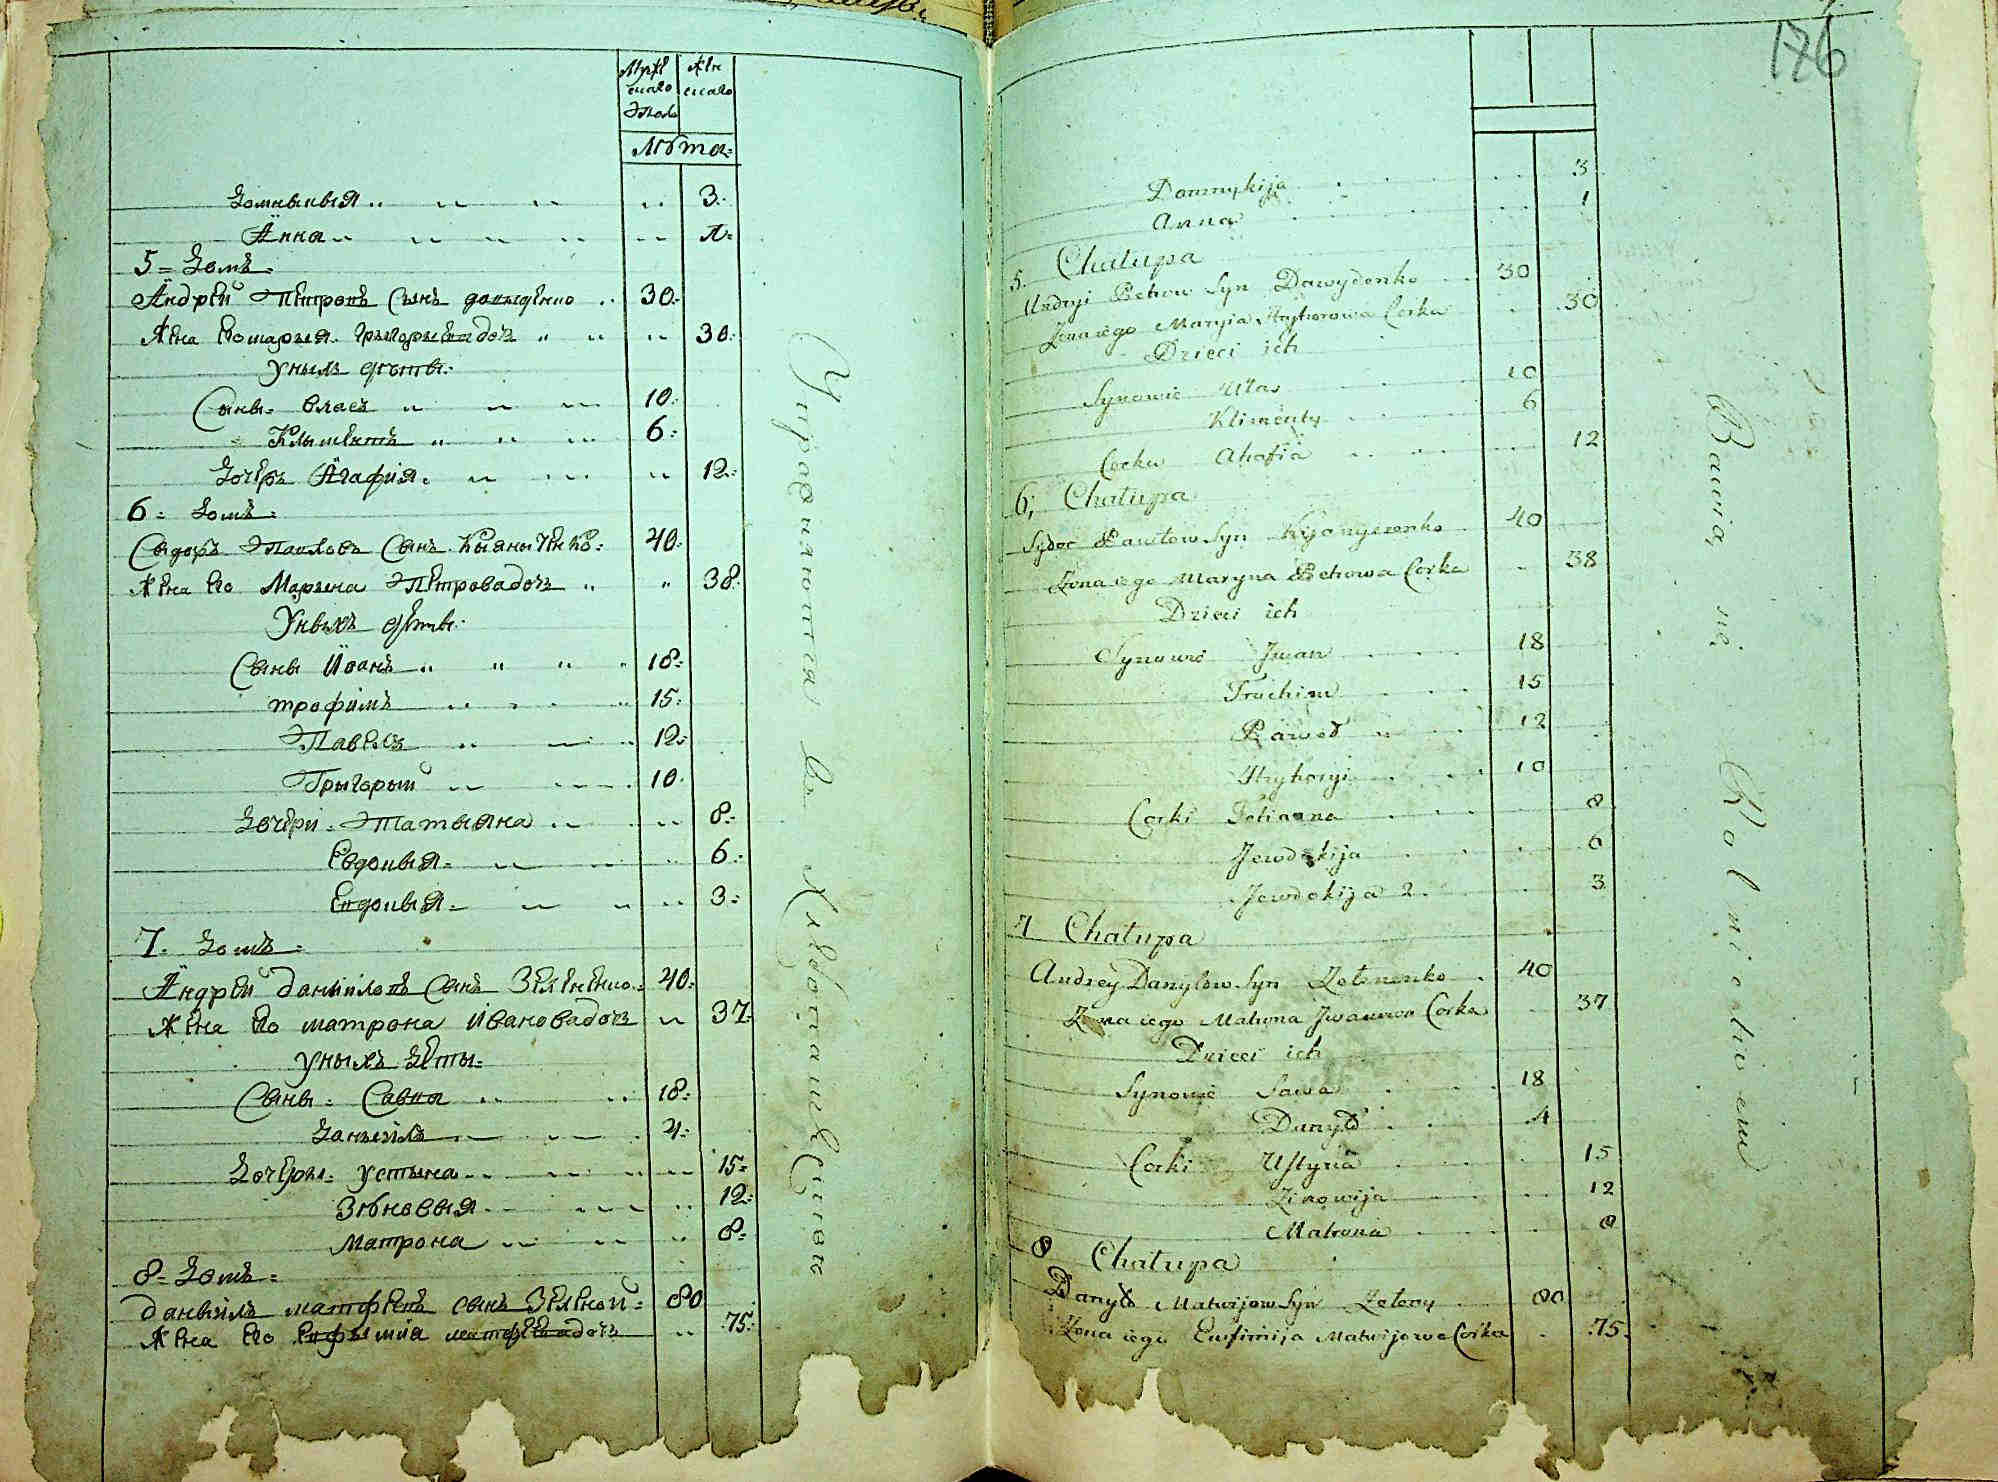 Мужескаго Полу
Женскаго
Лѣта
Домныкыя 3
Анна 1
5 Домъ
Андрей Петровъ Сынъ давыденко 30
Жена Его марыя Грыгорыева дочъ 30
Уныхъ дѣты
Сыны Власъ 10
Клыментъ 6
Дочеръ Агафия 12
6 Домъ
Сыдоръ Павловъ Сынъ Кыяныченко 40
Жена Его Марына Петрова дочъ 38
Уныхъ дѣты
Сыны Иоанъ 18
трофимъ 15
Павелъ 12
Грыгорый 10
Дочери Татыяна 8
Евдокыя 6
Евдокыя 3
7 Домъ
Андрей данииловъ Сынъ Зелененко 40
Жена Его матрона Иванова дочъ 37
уныхъ Дѣты
Сыны Савва 18
Даныилъ 4
Дочеры устына 15
Зѣновыя 12
Матрона 8
8 Домъ
даныилъ матфеевъ сынъ Зеленой 80
Жена Его Ефымия матфеева дочъ 75
Упражняются въ Хлебопашественномъ
176
Domnykija 3
Anna 1
5. Chałupa
Andryi Petrow Syn Dawydenko 30
Żona iego Maryia Hryhorowa Corka 30
Dzieci ich
Synowie Ułas 10
Klimenty 6
Corka Ahafia 12
6. Chałupa
Sydor Pawłow Syn Kijanyczenko 40
Żona iego Maryna Petrowa Corka 38
Dzieci ich
Synowie Jwan 18
Trochim 15
Paweł 12
Hryhoryi 10
Corki Tetianna 8
Jewdokija 6
Jewdokija 2. 3
7 Chałupa
Andrey Danyłow Syn Zełenenko 40
Żona iego Matrona Jwanowa Corka 37
Dzieci ich
Synowie Sawa 18
Danyło 4
Corki Ustyna 15
Zinowija 12
Matrona 8
8 Chałupa
Danyło Matwijow Syn Zeleny 80
Żona iego Eufimija Matwijowa Corka 75
Bawią się Rolnictwem